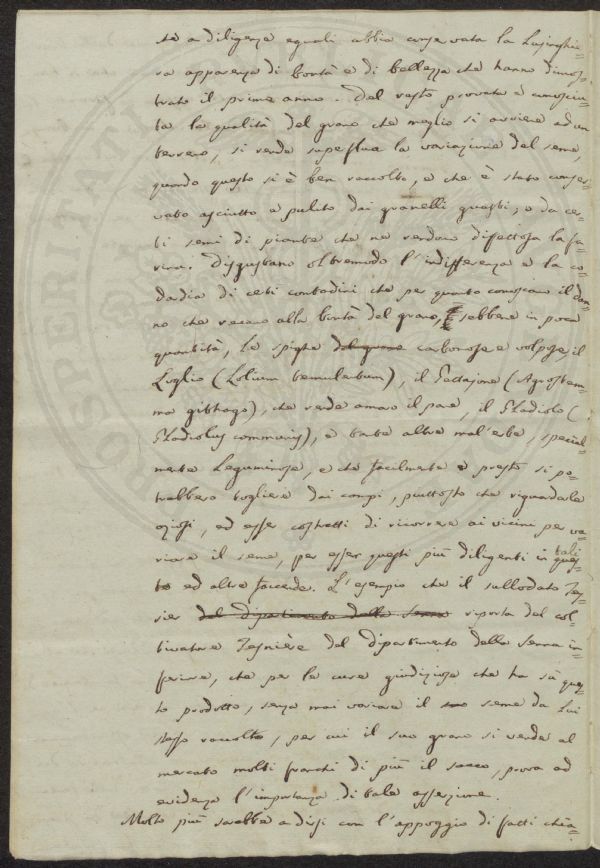 ta a diligenza eguali abbia conservata la lusinghie=
ra apparenza di bontà e di bellezza che hanno dimos=
trato il primo anno. Del resto provata e conosciu=
ta la qualità del grano che meglio si avviene ad un
terreno, si rende superflua la variazione del seme,
quando questo si è ben raccolto, e che è stato conser=
vato asciutto e pulito dai granelli guasti, o da cer=
ti semi di piante che ne rendono difettosa la fa=
rina. Disgustano oltremodo l'indifferenza e la co=
dardia di certi contadini che per quanto conoscano il dan=
no che recano alla bontà del grano, sebbene in poca
quantità, le spighe del grano carbonose e volpose, il
Loglio (Lolium temulentum), il Gettajone (Agrostem=
ma githago), che rende amaro il pane, il Gladiolo (
Gladiolus communis), e tante altre mal'erbe, special=
mente Leguminose, e che facilmente e presto si po=
trebbero togliere dai campi, piuttosto che riguardarle
oziosi, ed esser costretti di ricorrere ai vicini per va=
riare il seme, per esser questi più diligenti in tali
ques=
to ed altre faccende. L'esempio che il sullodato Tes=
sier del dipartimento della Senna riporta del col=
tivatore Tesnière del dipartimento della Senna in=
feriore, che per le cure giudiziose che ha su ques=
to prodotto, senza mai variare il suo seme da lui
stesso raccolto, per cui il suo grano si vende al
mercato molti franchi di più il sacco, prova ad
evidenza l'importanza di tale asserzione.
Molto più sarebbe a dirsi con l'appoggio di fatti chia=